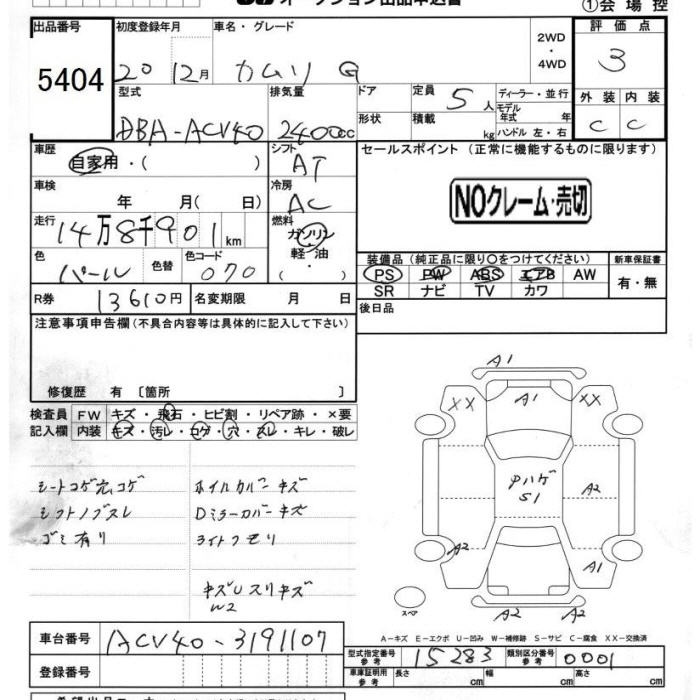 オークション出品申込書
①会場控
出品番号 5404
初度登録年月 20 12月
車名・グレード カムリ G
2WD・4WD
評価点 3
外装 C 内装 C
型式 DBA-ACV40
排気量 2400cc
ドア
形状
定員 5人
積載 kg
ディーラー・並行
モデル年式 年
ハンドル 左・右
車歴 自家用・( )
シフト AT
セールスポイント (正常に機能するものに限ります)
NOクレーム・売切
車検 年 月( 日)
冷房 AC
走行 14万8千901km
燃料 ガソリン 軽油・( )
色 パール 色替 色コード 070
装備品 (純正品に限り○をつけてください)
PS PW ABS エアB AW
SR ナビ TV カワ
新車保証書 有・無
R券 13610円 名変期限 月 日
後日品
注意事項申告欄 (不具合内容等は具体的に記入して下さい)
修復歴 有 〔箇所 〕
検査員記入欄
FW キズ・飛石・ヒビ割・リペア跡・×要
内装 キズ・汚レ・コゲ・穴・スレ・キレ・破レ
シートコゲ穴コゲ
シフトノブスレ
ゴミ有り
ホイルカバーキズ
Dミラーカバーキズ
ライトクモリ
キズUスリキズ
W2
A1
XX A1 XX
ハゲ
S1
A2
A2 A1
A2 A2
スペア
A-キズ E-エクボ U-凹み W-補修跡 S-サビ C-腐食 XX-交換済
車台番号 ACV40-3191107
型式指定番号 参考 15283 類別区分番号 参考 0001
登録番号
車庫証明用 参考 長さ 幅 高さ